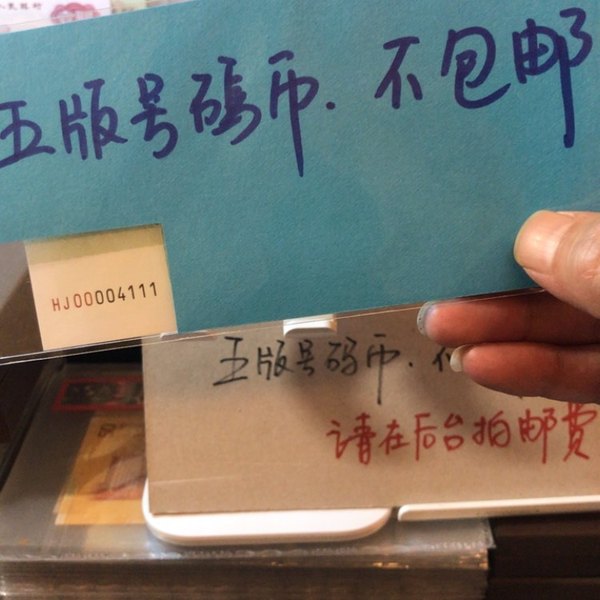 五版号码币.不包邮
HJ00004111
五版号码币.
请在后台拍邮费